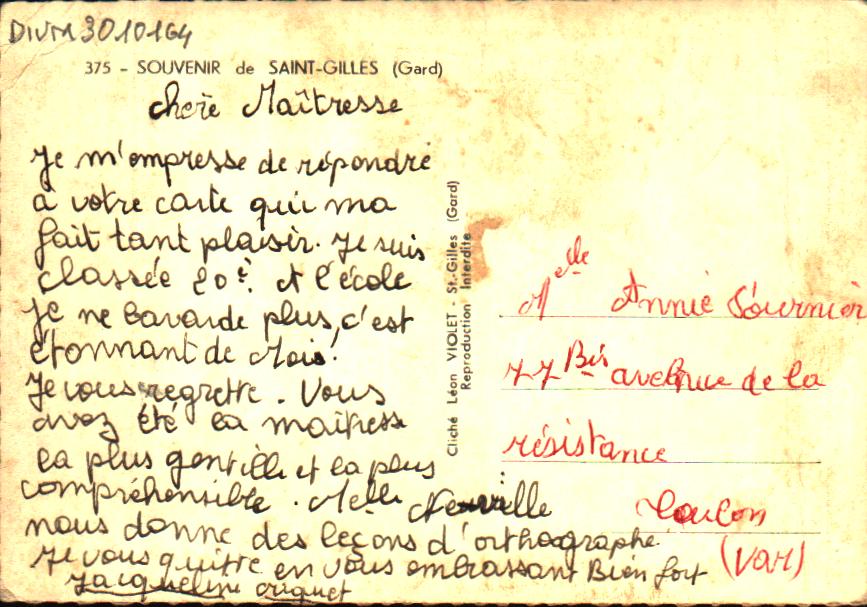 DIVM3010164
375 - SOUVENIR de SAINT-GILLES (Gard)
cherè Maîtresse
Je m'empresse de répondre
à votre carte qui ma
fait tant plaisir. Je suis
classée 20è. et l'école
je ne bavarde plus, c'est
étonnant de Mois!
Je vous regrette. Vous
avez été la maîtresse
la plus gentille et la plus
compréhensible. Melle
nous donne des leçons d'orthographe.
Je vous quitte en vous embrassant Bien fort
Jacqueline criquet
Cliché Léon VIOLET - St.-Gilles (Gard)
Reproduction Interdite
Melle Annie Sournier
77 Bis avenue de la
résistance
Toulon
(VAR)